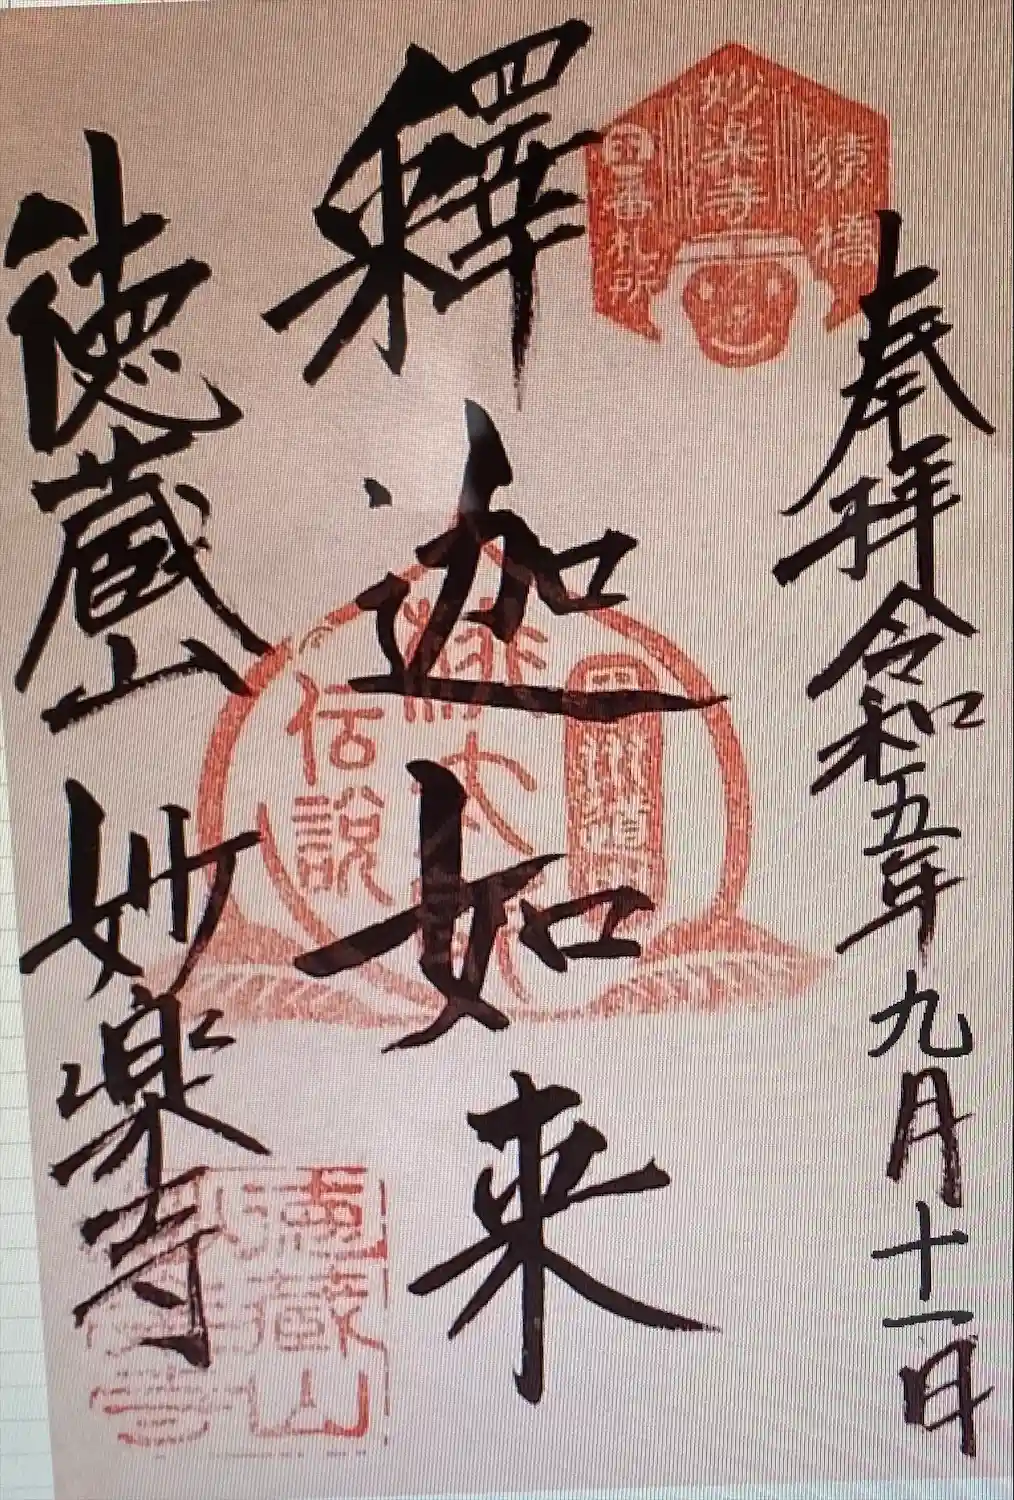 奉拝 令和五年九月十一日
猿橋
妙楽寺
四番札所
釋迦如来
桃太郎
伝説
徳蔵山 妙楽寺
徳蔵山